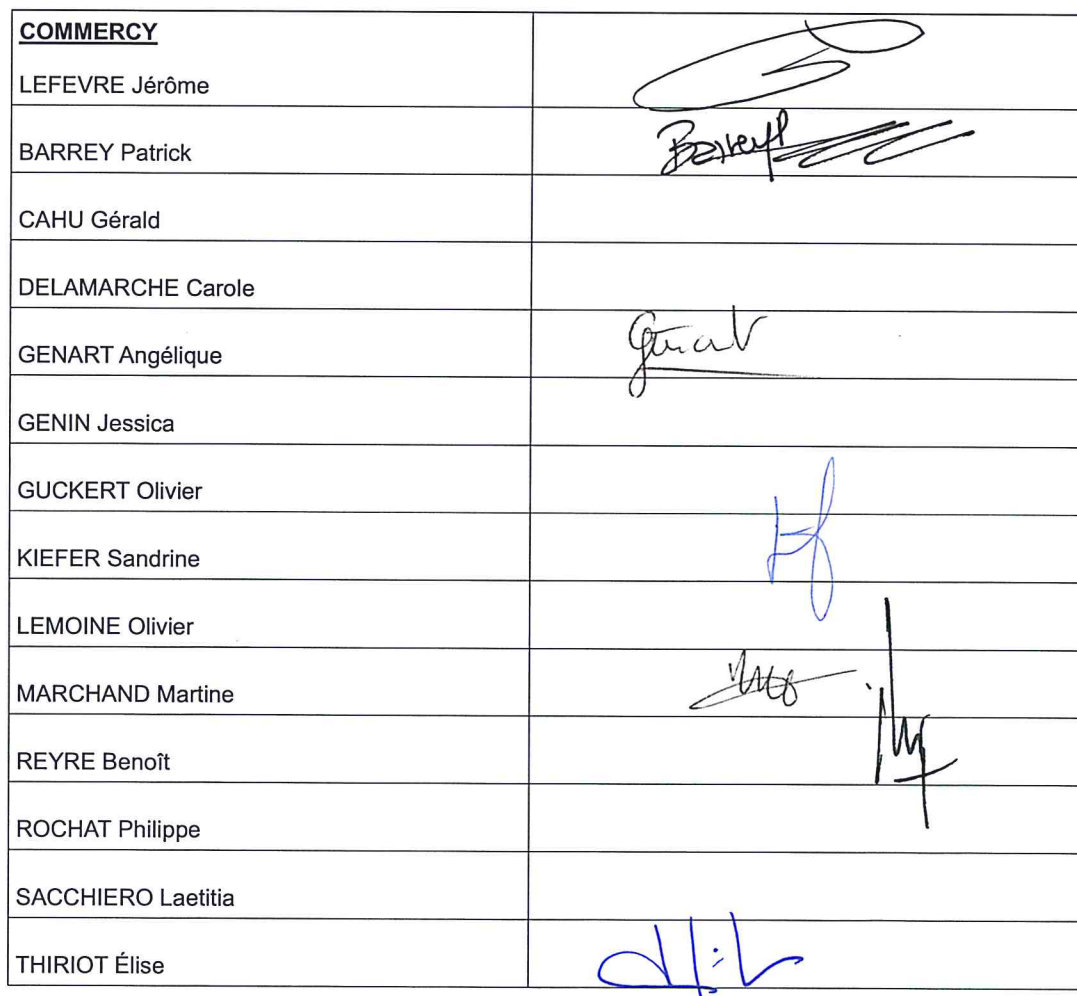 COMMERCY
LEFEVRE Jérôme
BARREY Patrick
Barrey
CAHU Gérald
DELAMARCHE Carole
GENART Angélique
GENIN Jessica
GUCKERT Olivier
KIEFER Sandrine
LEMOINE Olivier
MARCHAND Martine
REYRE Benoît
ROCHAT Philippe
SACCHIERO Laetitia
THIRIOT Élise